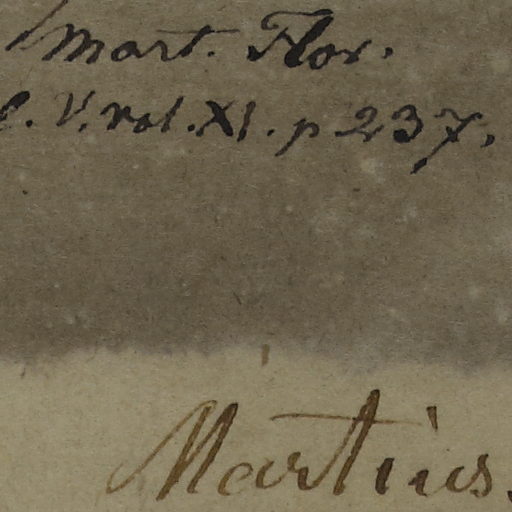 Mart. Flor.
V. vol. XI. p 237.
Martius.